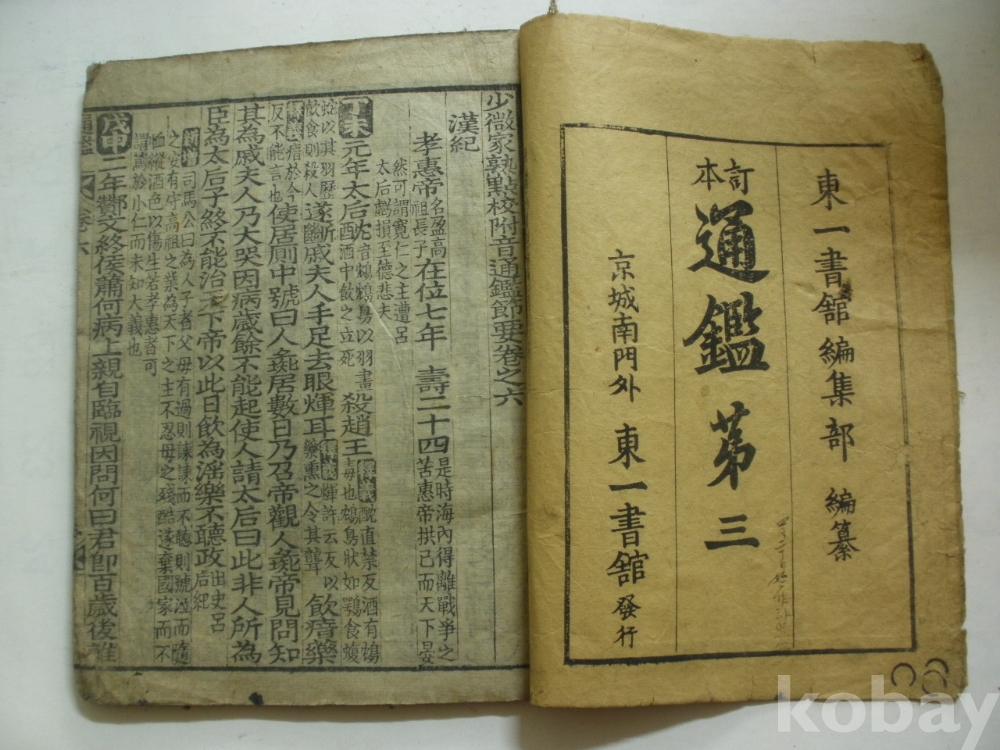 東一書舘編集部 編纂
訂本
通鑑 苐三
京城南門外 東一書舘 發行
少微家熟點校附音通鑑節要卷之六
漢紀
孝惠帝
名盈高
祖長子
在位七年 壽二十四
是時海內得離戰爭之
苦惠帝拱己而天下晏
然可謂寬仁之主遭呂
太后虧損至德悲夫
元年太后
殺趙王
釋義
酖直禁反酒有鴆
毒也鴆鳥狀如鶚食蝮
蛇以其羽歷
飮食則殺人
遂斷戚夫人手足去眼煇耳
飮瘖藥
反不能言也
使居厠中號曰人彘居數日乃召帝觀人彘帝見問知
其為戚夫人乃大哭因病歲餘不能起使人請太后曰此非人所為
臣為太后子終不能治天下帝以此日飮為淫樂不聽政
出史呂
后紀
司馬公曰為人子者父母有過則諫諫而不聽則號泣而隨
之安有守高祖之業為天下之主不忍母之殘酷遂棄國家而不
恤縱酒色以傷生若孝惠者可
謂篤於小仁而未知大義也
戊申
二年酇文終侯蕭何病上親自臨視因問何曰君即百歲後誰
kobay